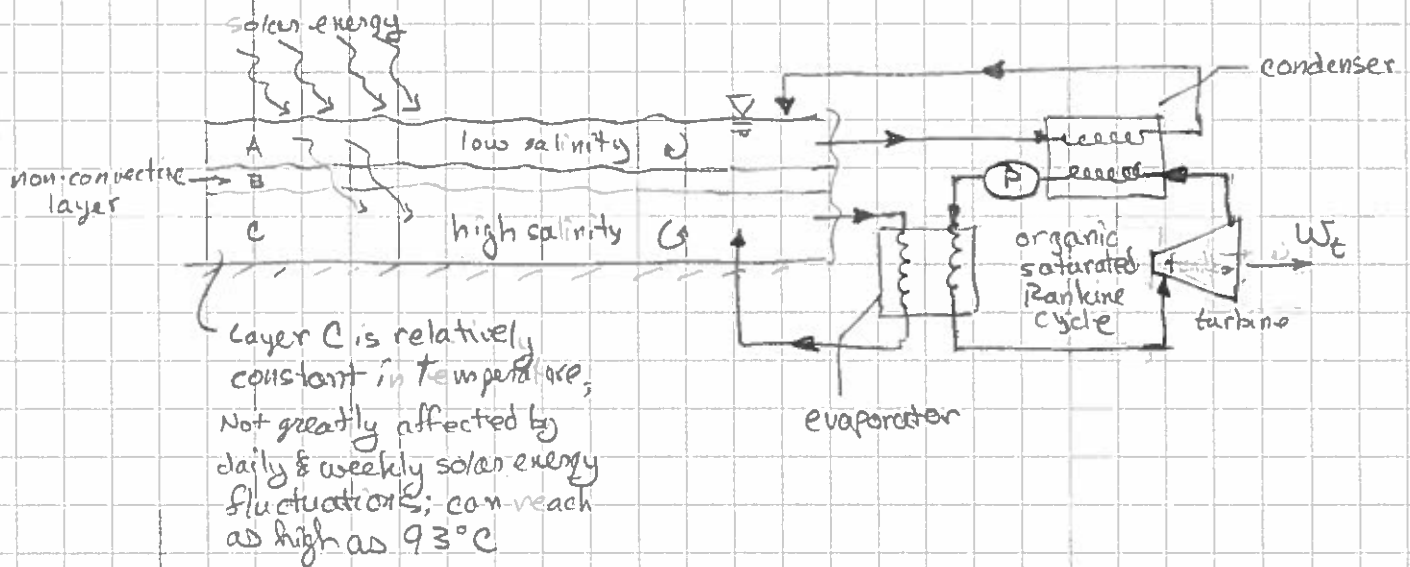 solar energy
condenser
A
low salinity
non-convective
layer
B
P
C
high salinity
organic
saturated
Rankine
cycle
Wt
turbine
Layer C is relatively
constant in temperature,
Not greatly affected by
daily & weekly solar energy
fluctuations; can reach
as high as 93°C
evaporator